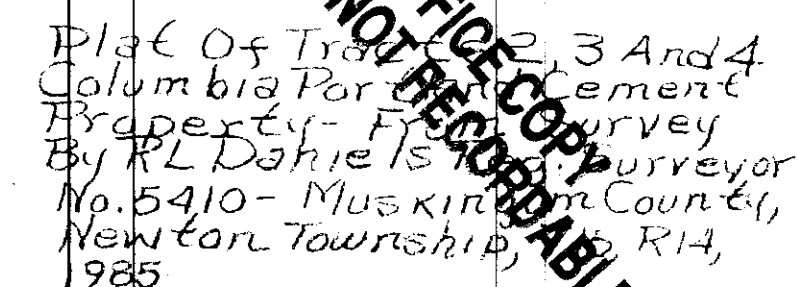 Plat Of Tracts 2, 3 And 4
Columbia Portland Cement
Property - From Survey
By RL Daniels Reg. Surveyor
No. 5410 - Muskingum County,
Newton Township, R14,
1985
OFFICE COPY
NOT RECORDABLE